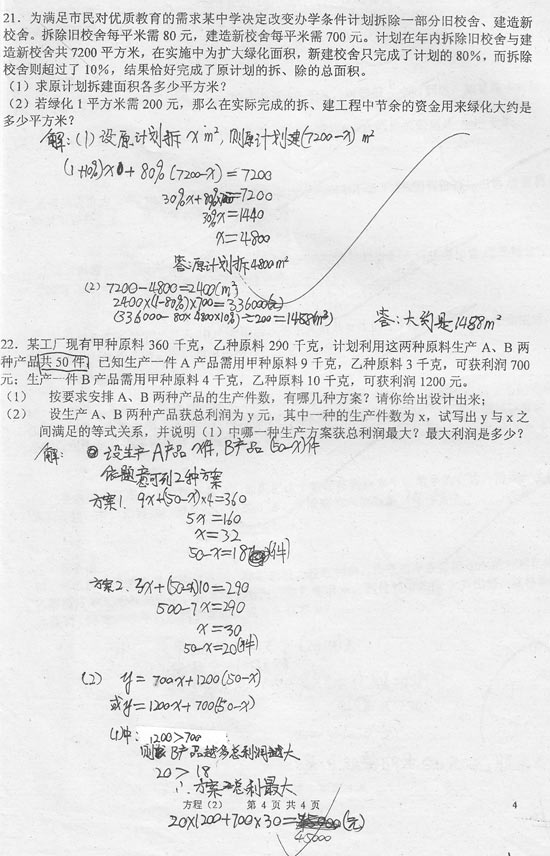 21. 为满足市民对优质教育的需求某中学决定改变办学条件计划拆除一部分旧校舍、建造新
校舍。拆除旧校舍每平米需 80 元，建造新校舍每平米需 700 元。计划在年内拆除旧校舍与建
造新校舍共 7200 平方米，在实施中为扩大绿化面积，新建校舍只完成了计划的 80%，而拆除
校舍则超过了 10%，结果恰好完成了原计划的拆、除的总面积。
（1）求原计划拆建面积各多少平方米？
（2）若绿化 1 平方米需 200 元，那么在实际完成的拆、建工程中节余的资金用来绿化大约是
多少平方米？
解:(1) 设原计划拆 x m², 则原计划建(7200-x) m²
(1+10%)x+80%(7200-x)=7200
=7200
30%x=1440
x=4800
答:原计划拆4800m²
(2) 7200-4800=2400(m²)
2400×(1-80%)×700=336000(元)
(336000-80×4800×10%)÷200=1488(m²)
答:大约是1488m²
22. 某工厂现有甲种原料 360 千克，乙种原料 290 千克，计划利用这两种原料生产 A、B 两
种产品共 50 件，已知生产一件 A 产品需用甲种原料 9 千克，乙种原料 3 千克，可获利润 700
元；生产一件 B 产品需用甲种原料 4 千克，乙种原料 10 千克，可获利润 1200 元。
（1） 按要求安排 A、B 两种产品的生产件数，有哪几种方案？请你给出设计出来；
（2） 设生产 A、B 两种产品获总利润为 y 元，其中一种的生产件数为 x，试写出 y 与 x 之
间满足的等式关系，并说明（1）中哪一种生产方案获总利润最大？最大利润是多少？
解: 设生产A产品x件, B产品(50-x)件
依题意可列2种方案
方案1. 9x+(50-x)×4=360
5x=160
x=32
50-x=18(件)
方案2. 3x+(50-x)10=290
500-7x=290
x=30
50-x=20(件)
(2) y=700x+1200(50-x)
或y=1200x+700(50-x)
(1)中: 1200>700
则B产品越多总利润越大
20>18
∴方案2总利最大
方程（2） 第 4 页 共 4 页 4
20×1200+700×30=(元)
45000